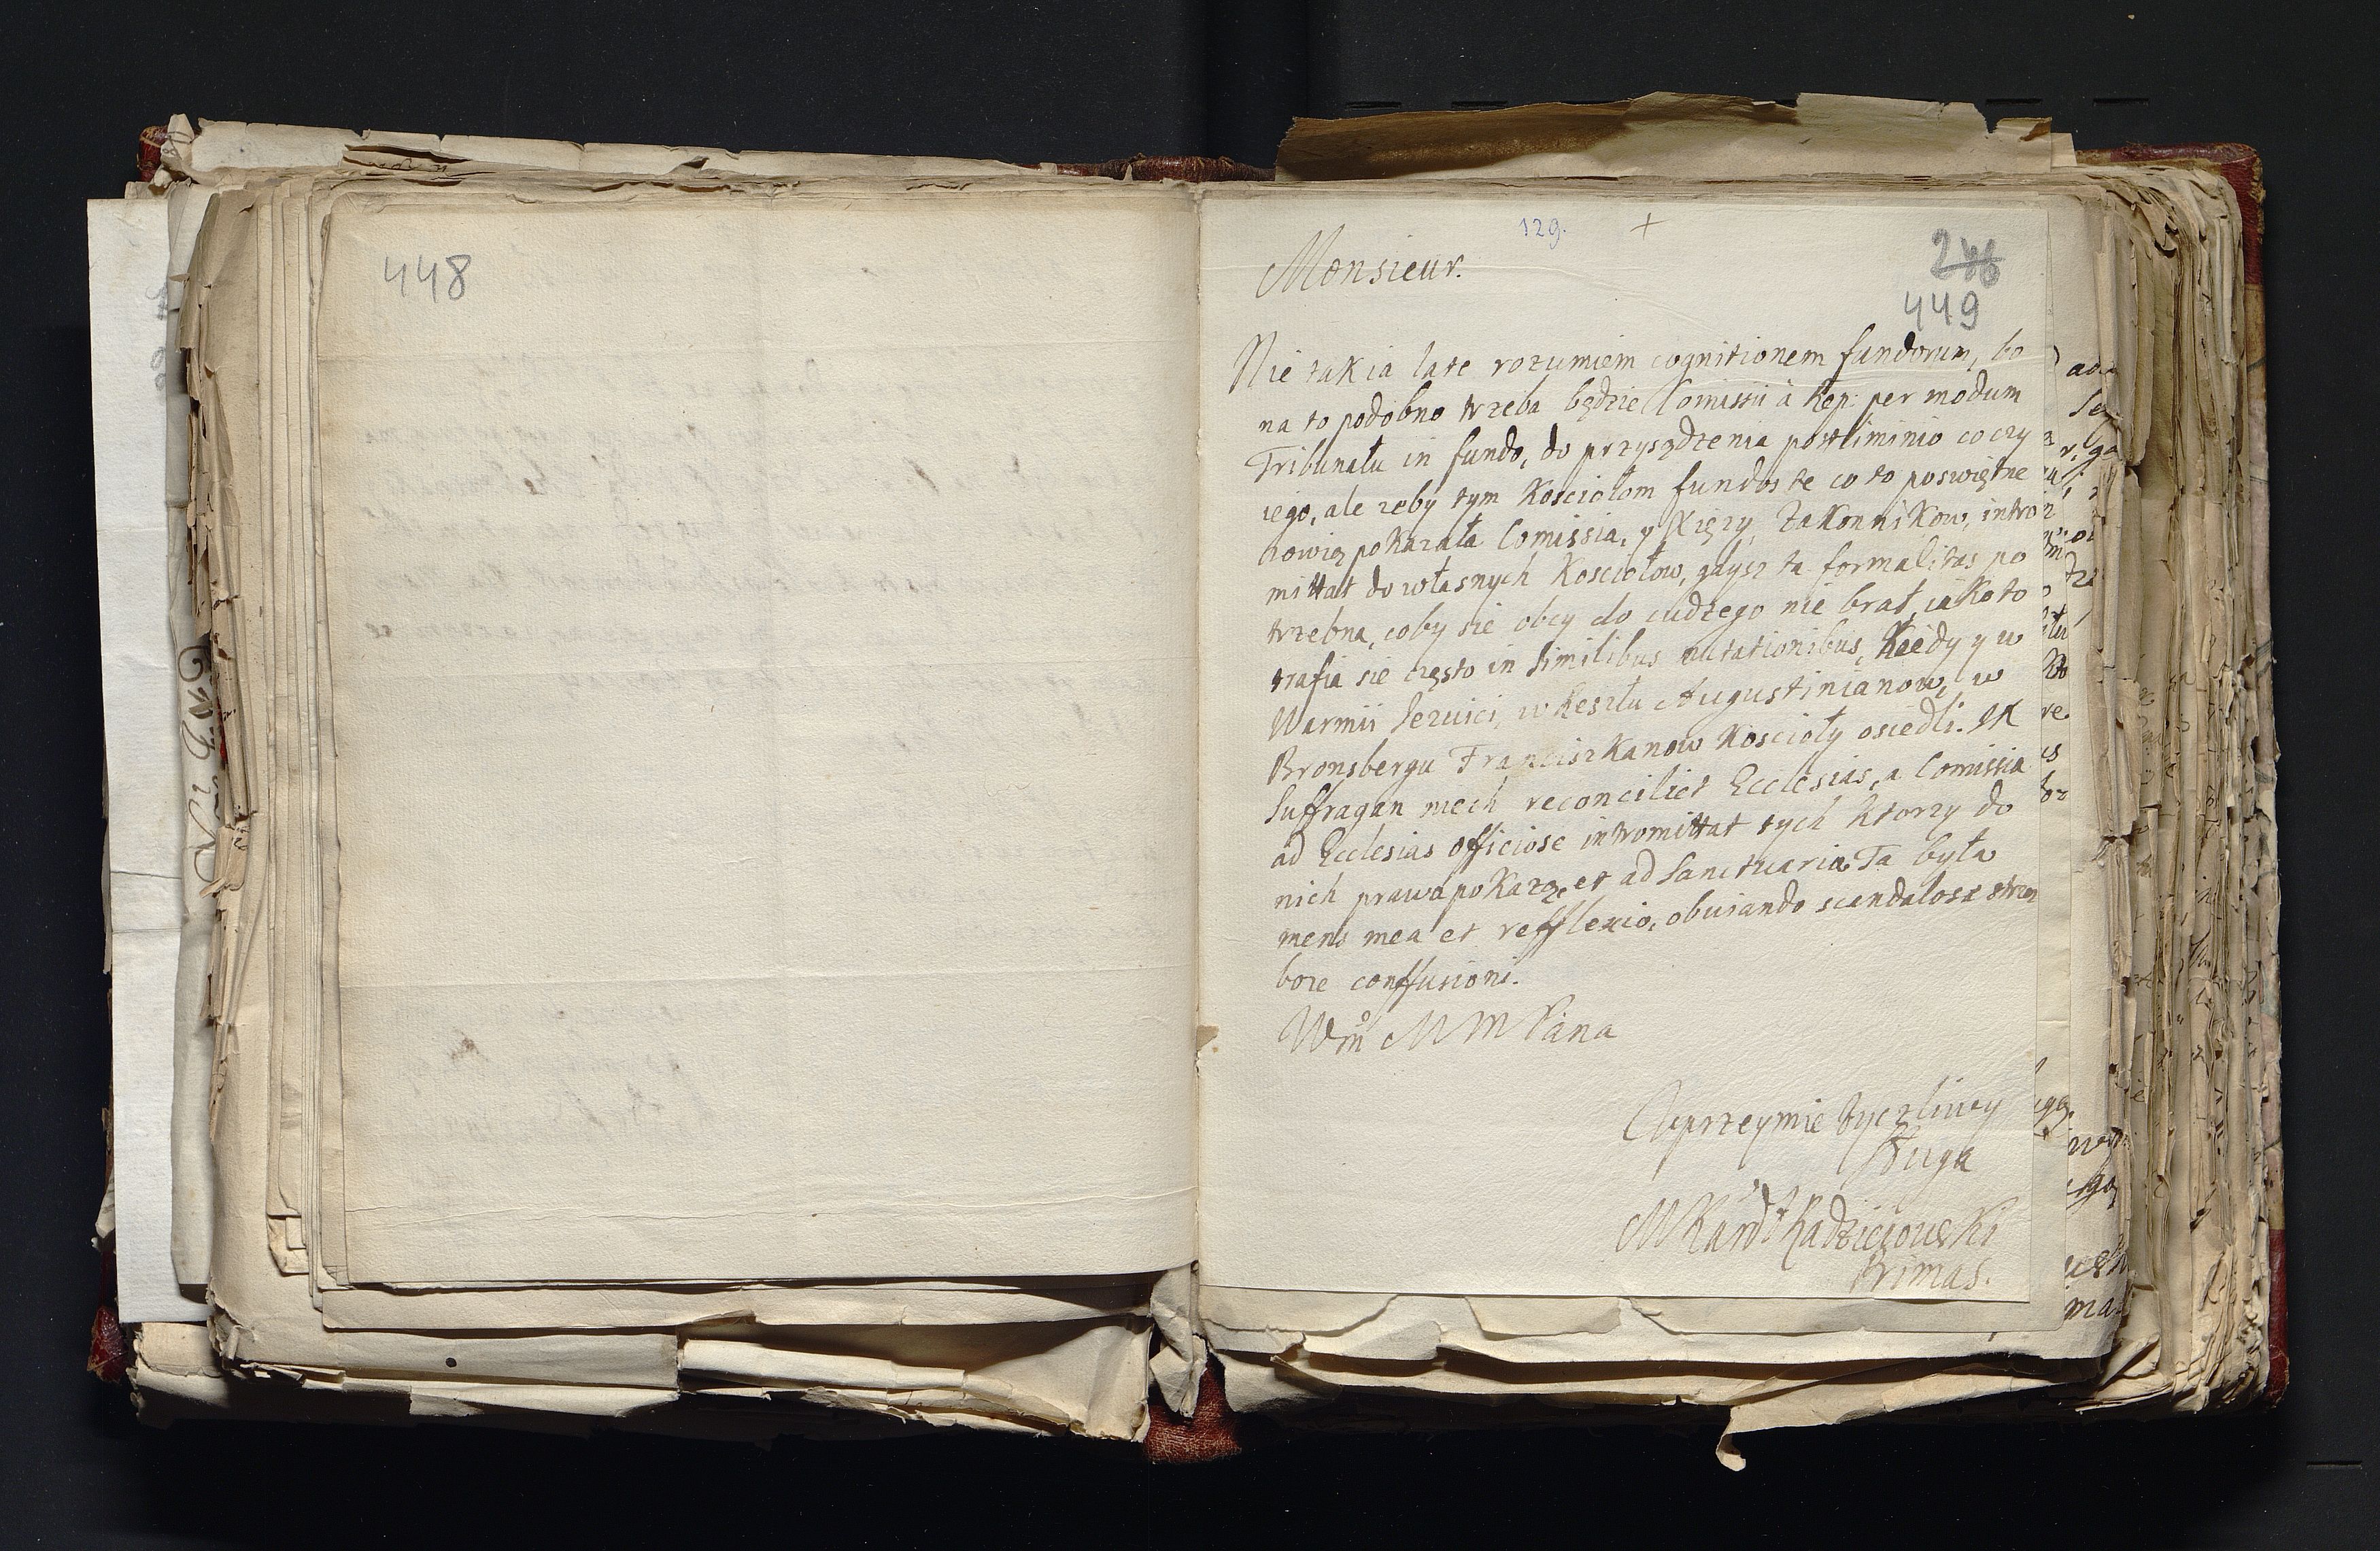 448
129. +
246
449
Monsieur.
Nie tak ia late rozumiem cognitionem fundorum, bo
na to podobno trzeba będzie Comissii à Rep: per modum
Tribunału in fundo, do przysądzenia postliminio co czy
iego, ale zeby tym Kosciołom fundos te co to poswiętne
zowią pokazała Comissia, y Xięzy, Zakonnikow, intro
mittat do własnych Kosciołow, gdysz ta formalitas po
trzebna, coby sie obcy do cudzego nie brał, iako to
trafia sie często in similibus mutationibus, Kiedy y w
Warmii Jezuici, w Reszlu Augustinianow, w
Bronsbergu Franciszkanow Koscioły osiedli. IX
Suffragan niech reconciliet Ecclesias, a Comissia
ad Ecclesias officiose intromittat tych Ktorzy do
nich prawa pokazą, et ad Sanctuaria. Ta była
mens mea et refflexio, obuiando scandalosæ
confusioni.
Wm̃ M M Pana
Uprzeymie zyczliwy
Sługa
M Kard Radzieiowski
Primas.